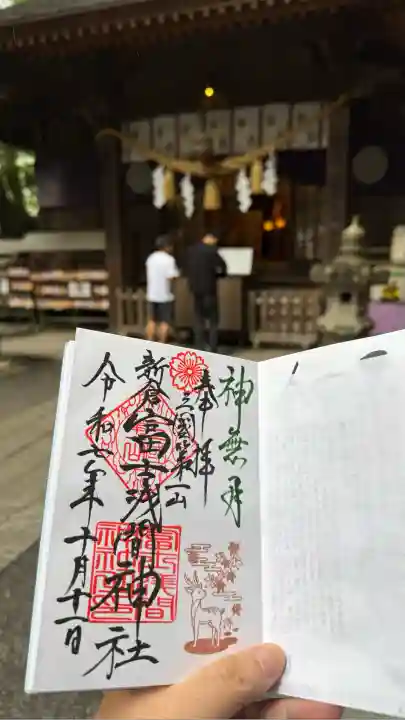 神無月
奉拝
三國第一山
新倉富士浅間神社
令和七年十月十一日